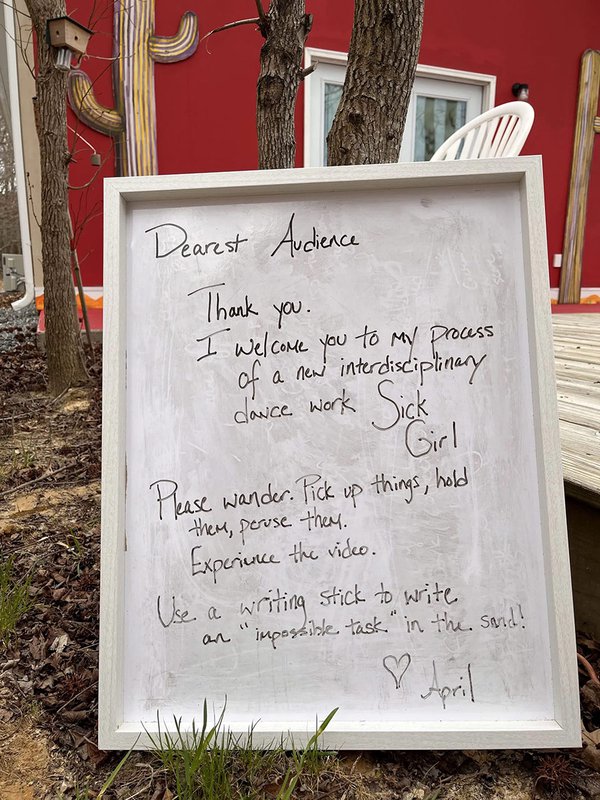 Dearest Audience
Thank you.
I welcome you to my process
of a new interdisciplinary
dance work Sick
Girl
Please wander. Pick up things, hold
them, peruse them.
Experience the video.
Use a writing stick to write
an "impossible task" in the sand!
♡ April